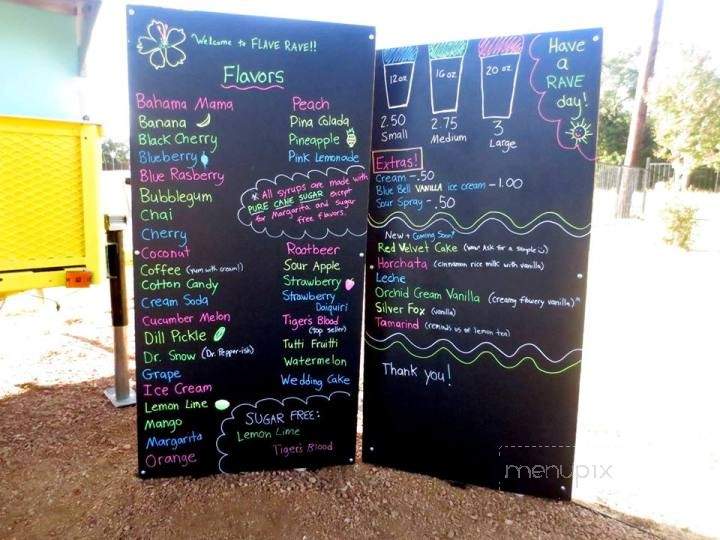 Welcome to FLAVE RAVE!!
Flavors
Bahama Mama
Banana
Black Cherry
Blueberry
Blue Rasberry
Bubblegum
Chai
Cherry
Coconut
Coffee (yum with cream!)
Cotton Candy
Cream Soda
Cucumber Melon
Dill Pickle
Dr. Snow (Dr. Pepper-ish)
Grape
Ice Cream
Lemon Lime
Mango
Margarita
Orange
Peach
Pina Colada
Pineapple
Pink Lemonade
* All syrups are made with
PURE CANE SUGAR except
for Margarita and sugar
free flavors.
Rootbeer
Sour Apple
Strawberry
Strawberry
Daiquiri
Tiger's Blood
(top seller)
Tutti Fruitti
Watermelon
Wedding Cake
SUGAR FREE:
Lemon Lime
Tiger's Blood
12 oz
16 oz
20 oz
2.50
Small
2.75
Medium
3
Large
Have
a
RAVE
day!
Extras!
Cream - .50
Blue Bell VANILLA ice cream - 1.00
Sour Spray - .50
New + Coming Soon!
Red Velvet Cake (wow! Ask for a sample :))
Horchata (cinnamon rice milk with vanilla)
Leche
Orchid Cream Vanilla (creamy flowery vanilla)
Silver Fox (vanilla)
Tamarind (reminds us of lemon tea)
Thank you!
menupix